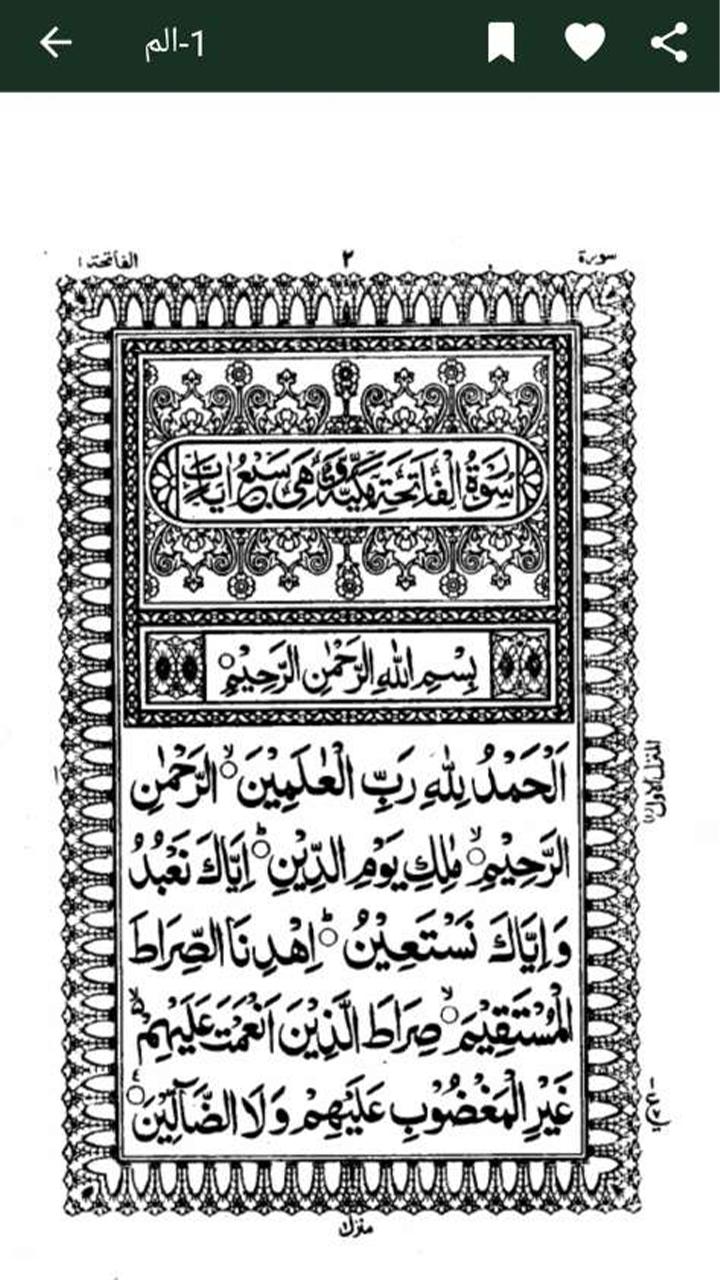 1-الم
سورة ٢ الفاتحة ١
سُوْرَةُ الْفَاتِحَةِ مَكِّيَّةٌ وَّهِىَ سَبْعُ اٰيَاتٍ
بِسْمِ اللهِ الرَّحْمٰنِ الرَّحِيْمِ○
اَلْحَمْدُ لِلّٰهِ رَبِّ الْعٰلَمِيْنَ○ۙ الرَّحْمٰنِ
الرَّحِيْمِ○ۙ مٰلِكِ يَوْمِ الدِّيْنِ○ؕ اِيَّاكَ نَعْبُدُ
وَاِيَّاكَ نَسْتَعِيْنُ○ؕ اِهْدِنَا الصِّرَاطَ
الْمُسْتَقِيْمَ○ۙ صِرَاطَ الَّذِيْنَ اَنْعَمْتَ عَلَيْهِمْ ۙ۬
غَيْرِ الْمَغْضُوْبِ عَلَيْهِمْ وَلَا الضَّآلِّيْنَ○
المنزل الاول
منزل